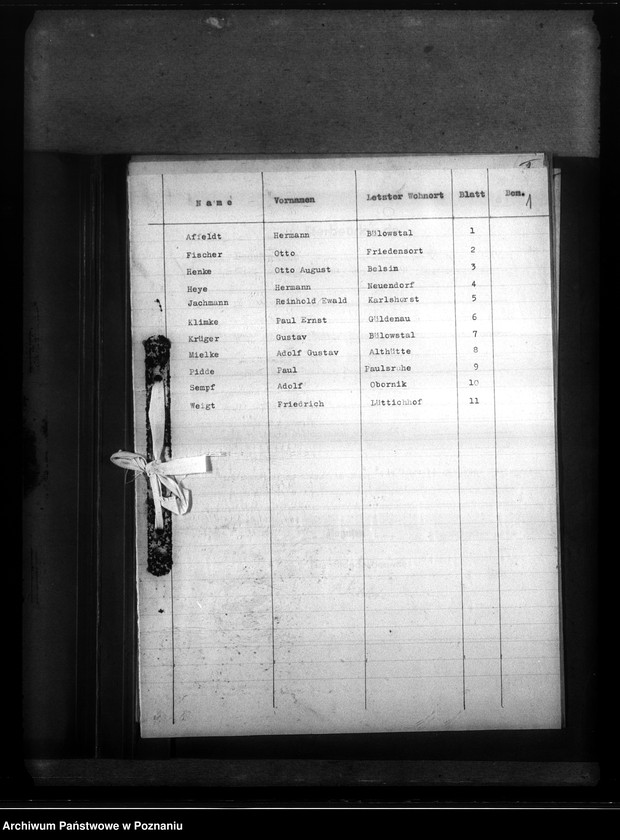 Name Vornamen Letzter Wohnort Blatt Bem.
1
Affeldt Hermann Bülowstal 1
Fischer Otto Friedensort 2
Henke Otto August Bolsin 3
Heye Hermann Neuendorf 4
Jachmann Reinhold Ewald Karlshorst 5
Klimke Paul Ernst Güldenau 6
Krüger Gustav Bülowstal 7
Mielke Adolf Gustav Althütte 8
Pidde Paul Paulsruhe 9
Sempf Adolf Obornik 10
Weigt Friedrich Lüttichhof 11
Archiwum Państwowe w Poznaniu